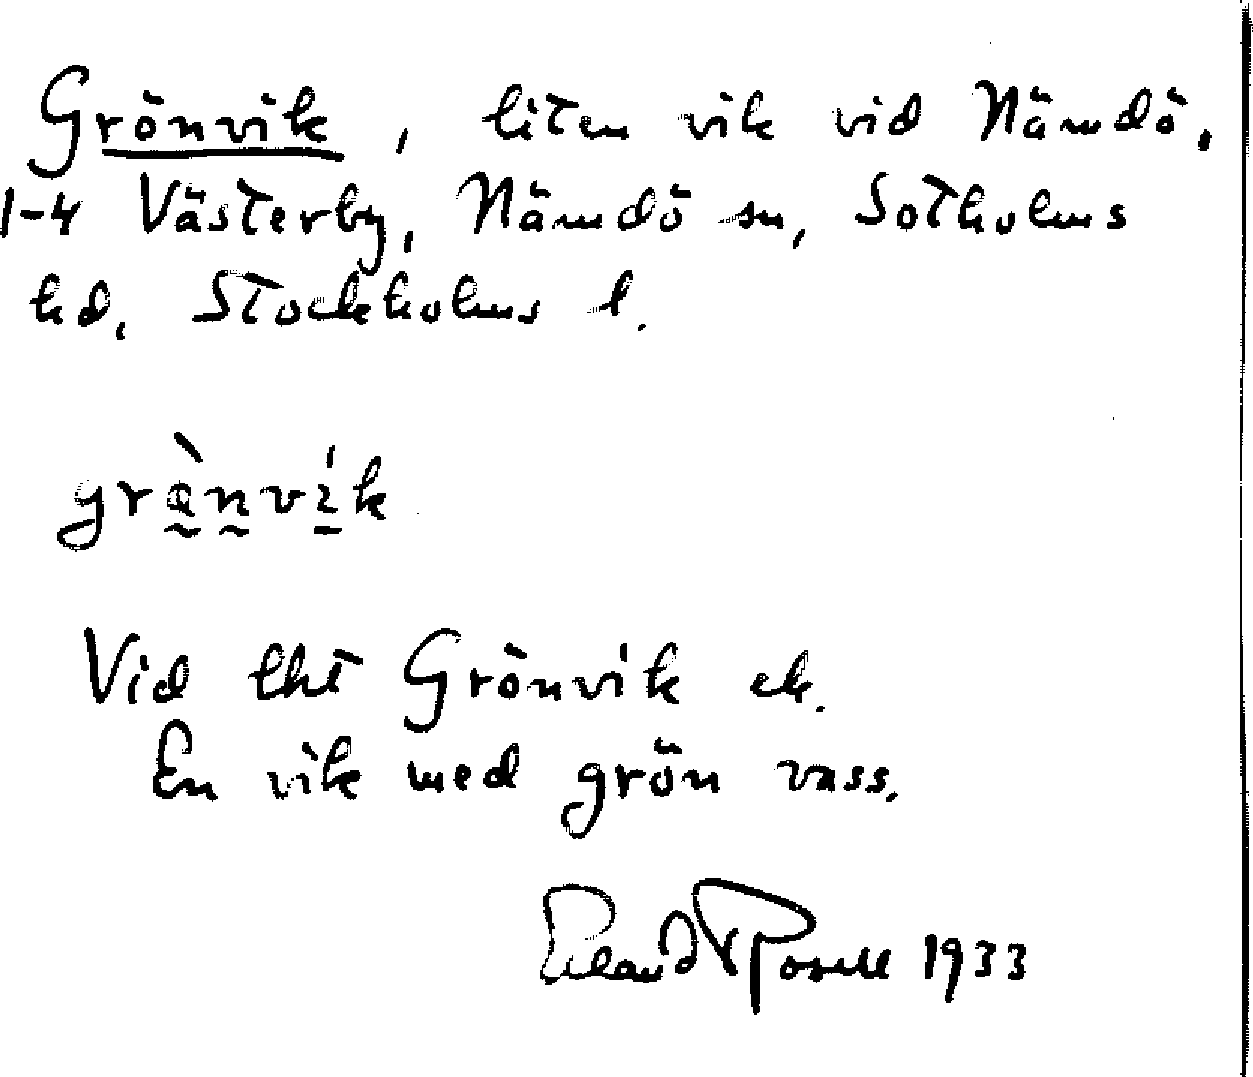 Grönvik, liten vik vid Nämdö,
1-4 Västerby, Nämdö sn, Sotholms
hd, Stockholms l.
Vid tht Grönvik ek.
En vik med grön vass.
Erland Rosell 1933